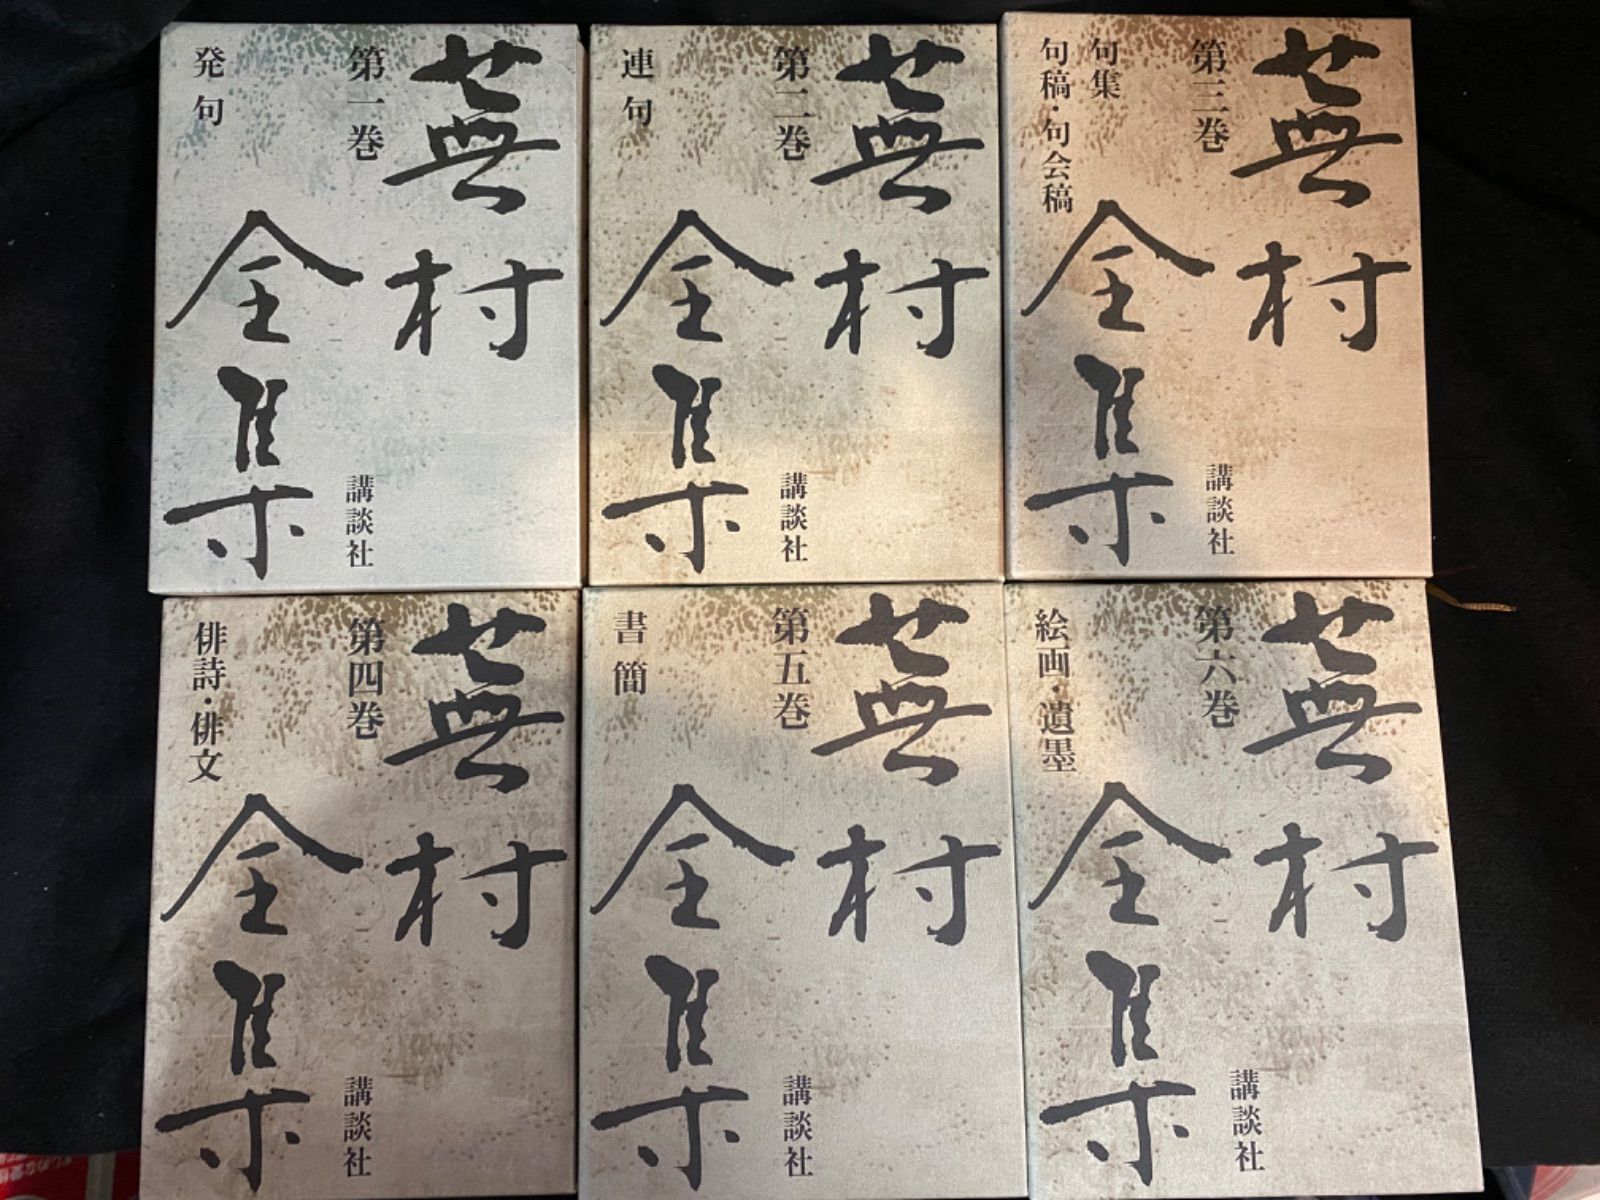 蕪村
全集
第一巻
発句
講談社
蕪村
全集
第二巻
連句
講談社
蕪村
全集
第三巻
句集
句稿・句会稿
講談社
蕪村
全集
第四巻
俳詩・俳文
講談社
蕪村
全集
第五巻
書簡
講談社
蕪村
全集
第六巻
絵画・遺墨
講談社